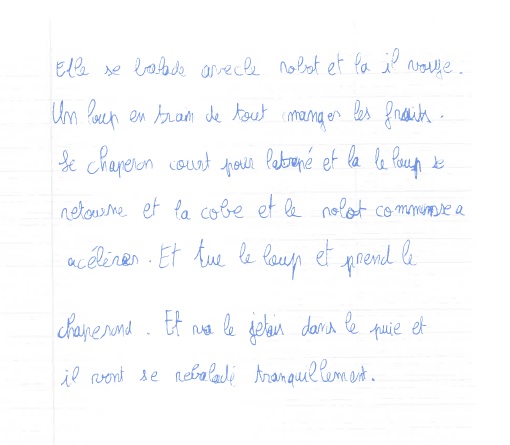 Elle se balade avec le robot et la il voye.
Un loup en train de tout manger les fruits.
Le chaperon court pour latrapé et la le loup se
retourne et la cobe et le robot commense a
acélérer. Et tue le loup et prend le
chaperond. Et va le jetair dans le puie et
il vont se rebaladé tranquillement.